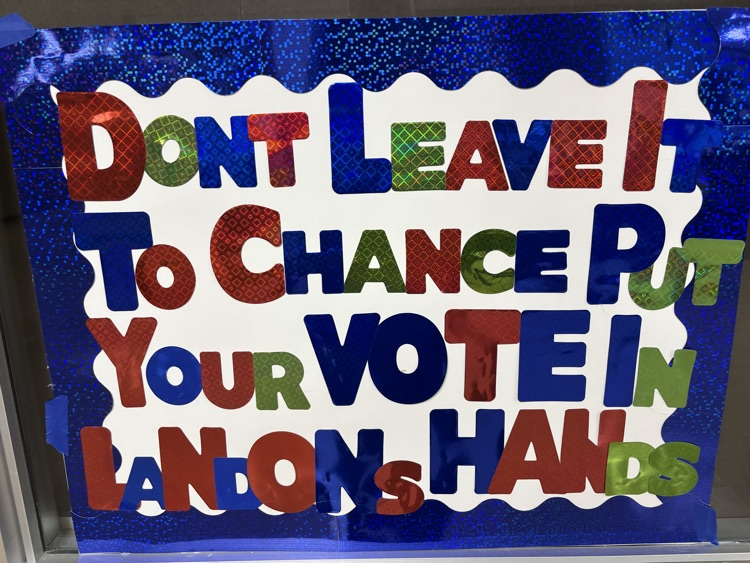 DONT LEAVE IT
TO CHANCE PUT
YOUR VOTE IN
LANDONS HANDS